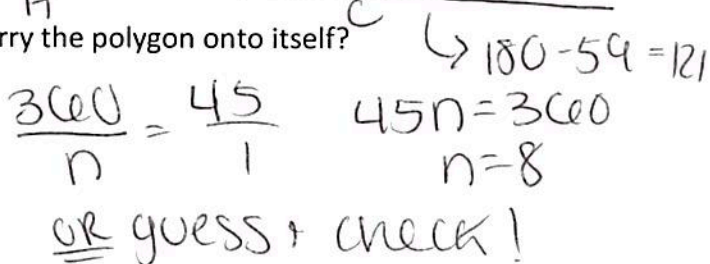 rry the polygon onto itself?
↳ 180-59=121
360/n = 45/1
45n=360
n=8
OR guess + check!